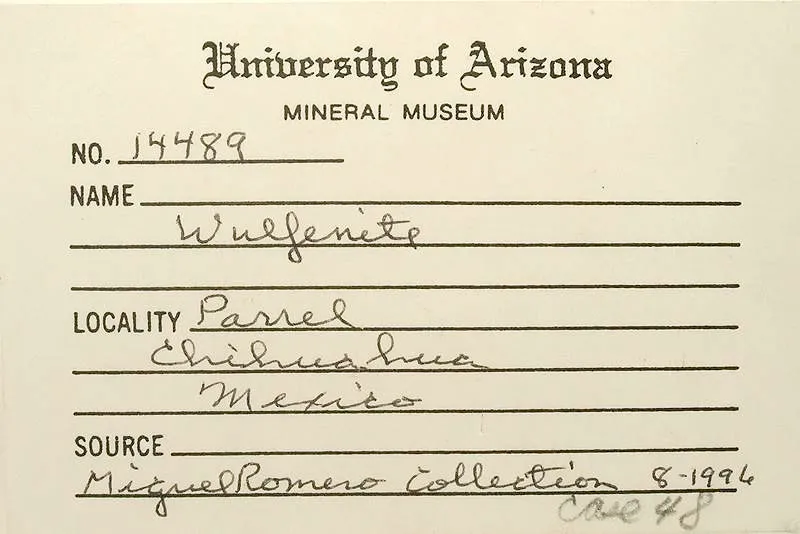 University of Arizona
MINERAL MUSEUM
NO. 14489
NAME
Wulfenite
LOCALITY Parrel
Chihuahua
Mexico
SOURCE
Miguel Romero Collection 8-1996
Case 48